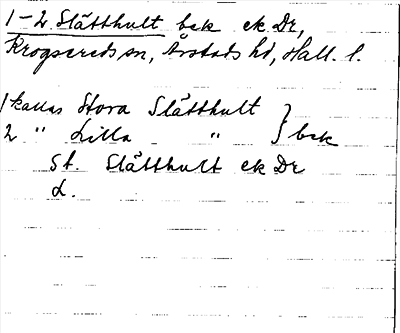 1-2 Slätthult bek ek. Dr,
Krogsereds sn, Årstads hd, Hall. l.
1 kallas Stora Slätthult } bek
2 " Lilla "
St. Slätthult ek Dr
L.